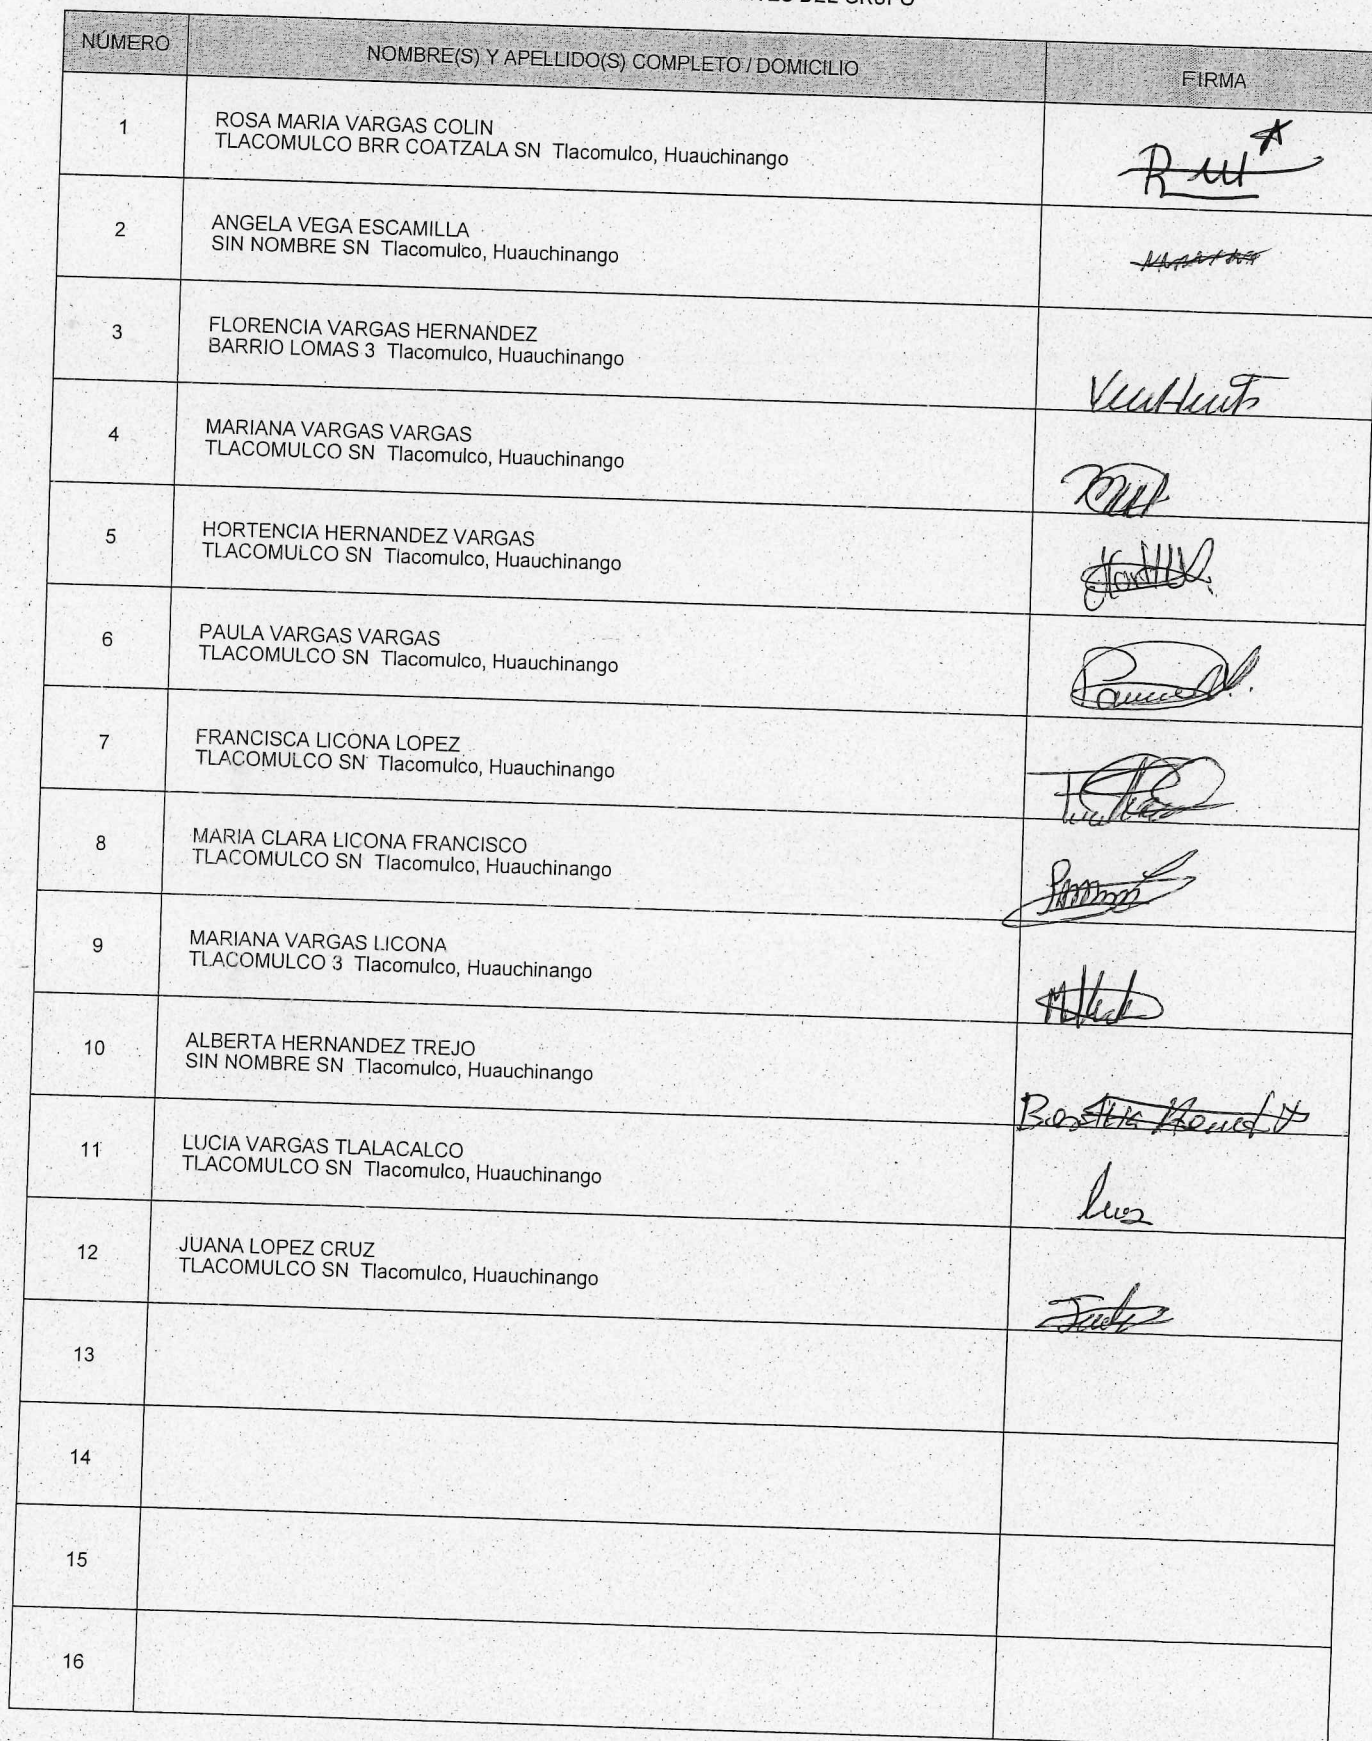 DEL GRUPO
NÚMERO NOMBRE(S) Y APELLIDO(S) COMPLETO / DOMICILIO FIRMA
1 ROSA MARIA VARGAS COLIN
TLACOMULCO BRR COATZALA SN Tlacomulco, Huauchinango
2 ANGELA VEGA ESCAMILLA
SIN NOMBRE SN Tlacomulco, Huauchinango
3 FLORENCIA VARGAS HERNANDEZ
BARRIO LOMAS 3 Tlacomulco, Huauchinango
4 MARIANA VARGAS VARGAS
TLACOMULCO SN Tlacomulco, Huauchinango
5 HORTENCIA HERNANDEZ VARGAS
TLACOMULCO SN Tlacomulco, Huauchinango
6 PAULA VARGAS VARGAS
TLACOMULCO SN Tlacomulco, Huauchinango
7 FRANCISCA LICONA LOPEZ
TLACOMULCO SN Tlacomulco, Huauchinango
8 MARIA CLARA LICONA FRANCISCO
TLACOMULCO SN Tlacomulco, Huauchinango
9 MARIANA VARGAS LICONA
TLACOMULCO 3 Tlacomulco, Huauchinango
10 ALBERTA HERNANDEZ TREJO
SIN NOMBRE SN Tlacomulco, Huauchinango
11 LUCIA VARGAS TLALACALCO
TLACOMULCO SN Tlacomulco, Huauchinango
12 JUANA LOPEZ CRUZ
TLACOMULCO SN Tlacomulco, Huauchinango
13
14
15
16